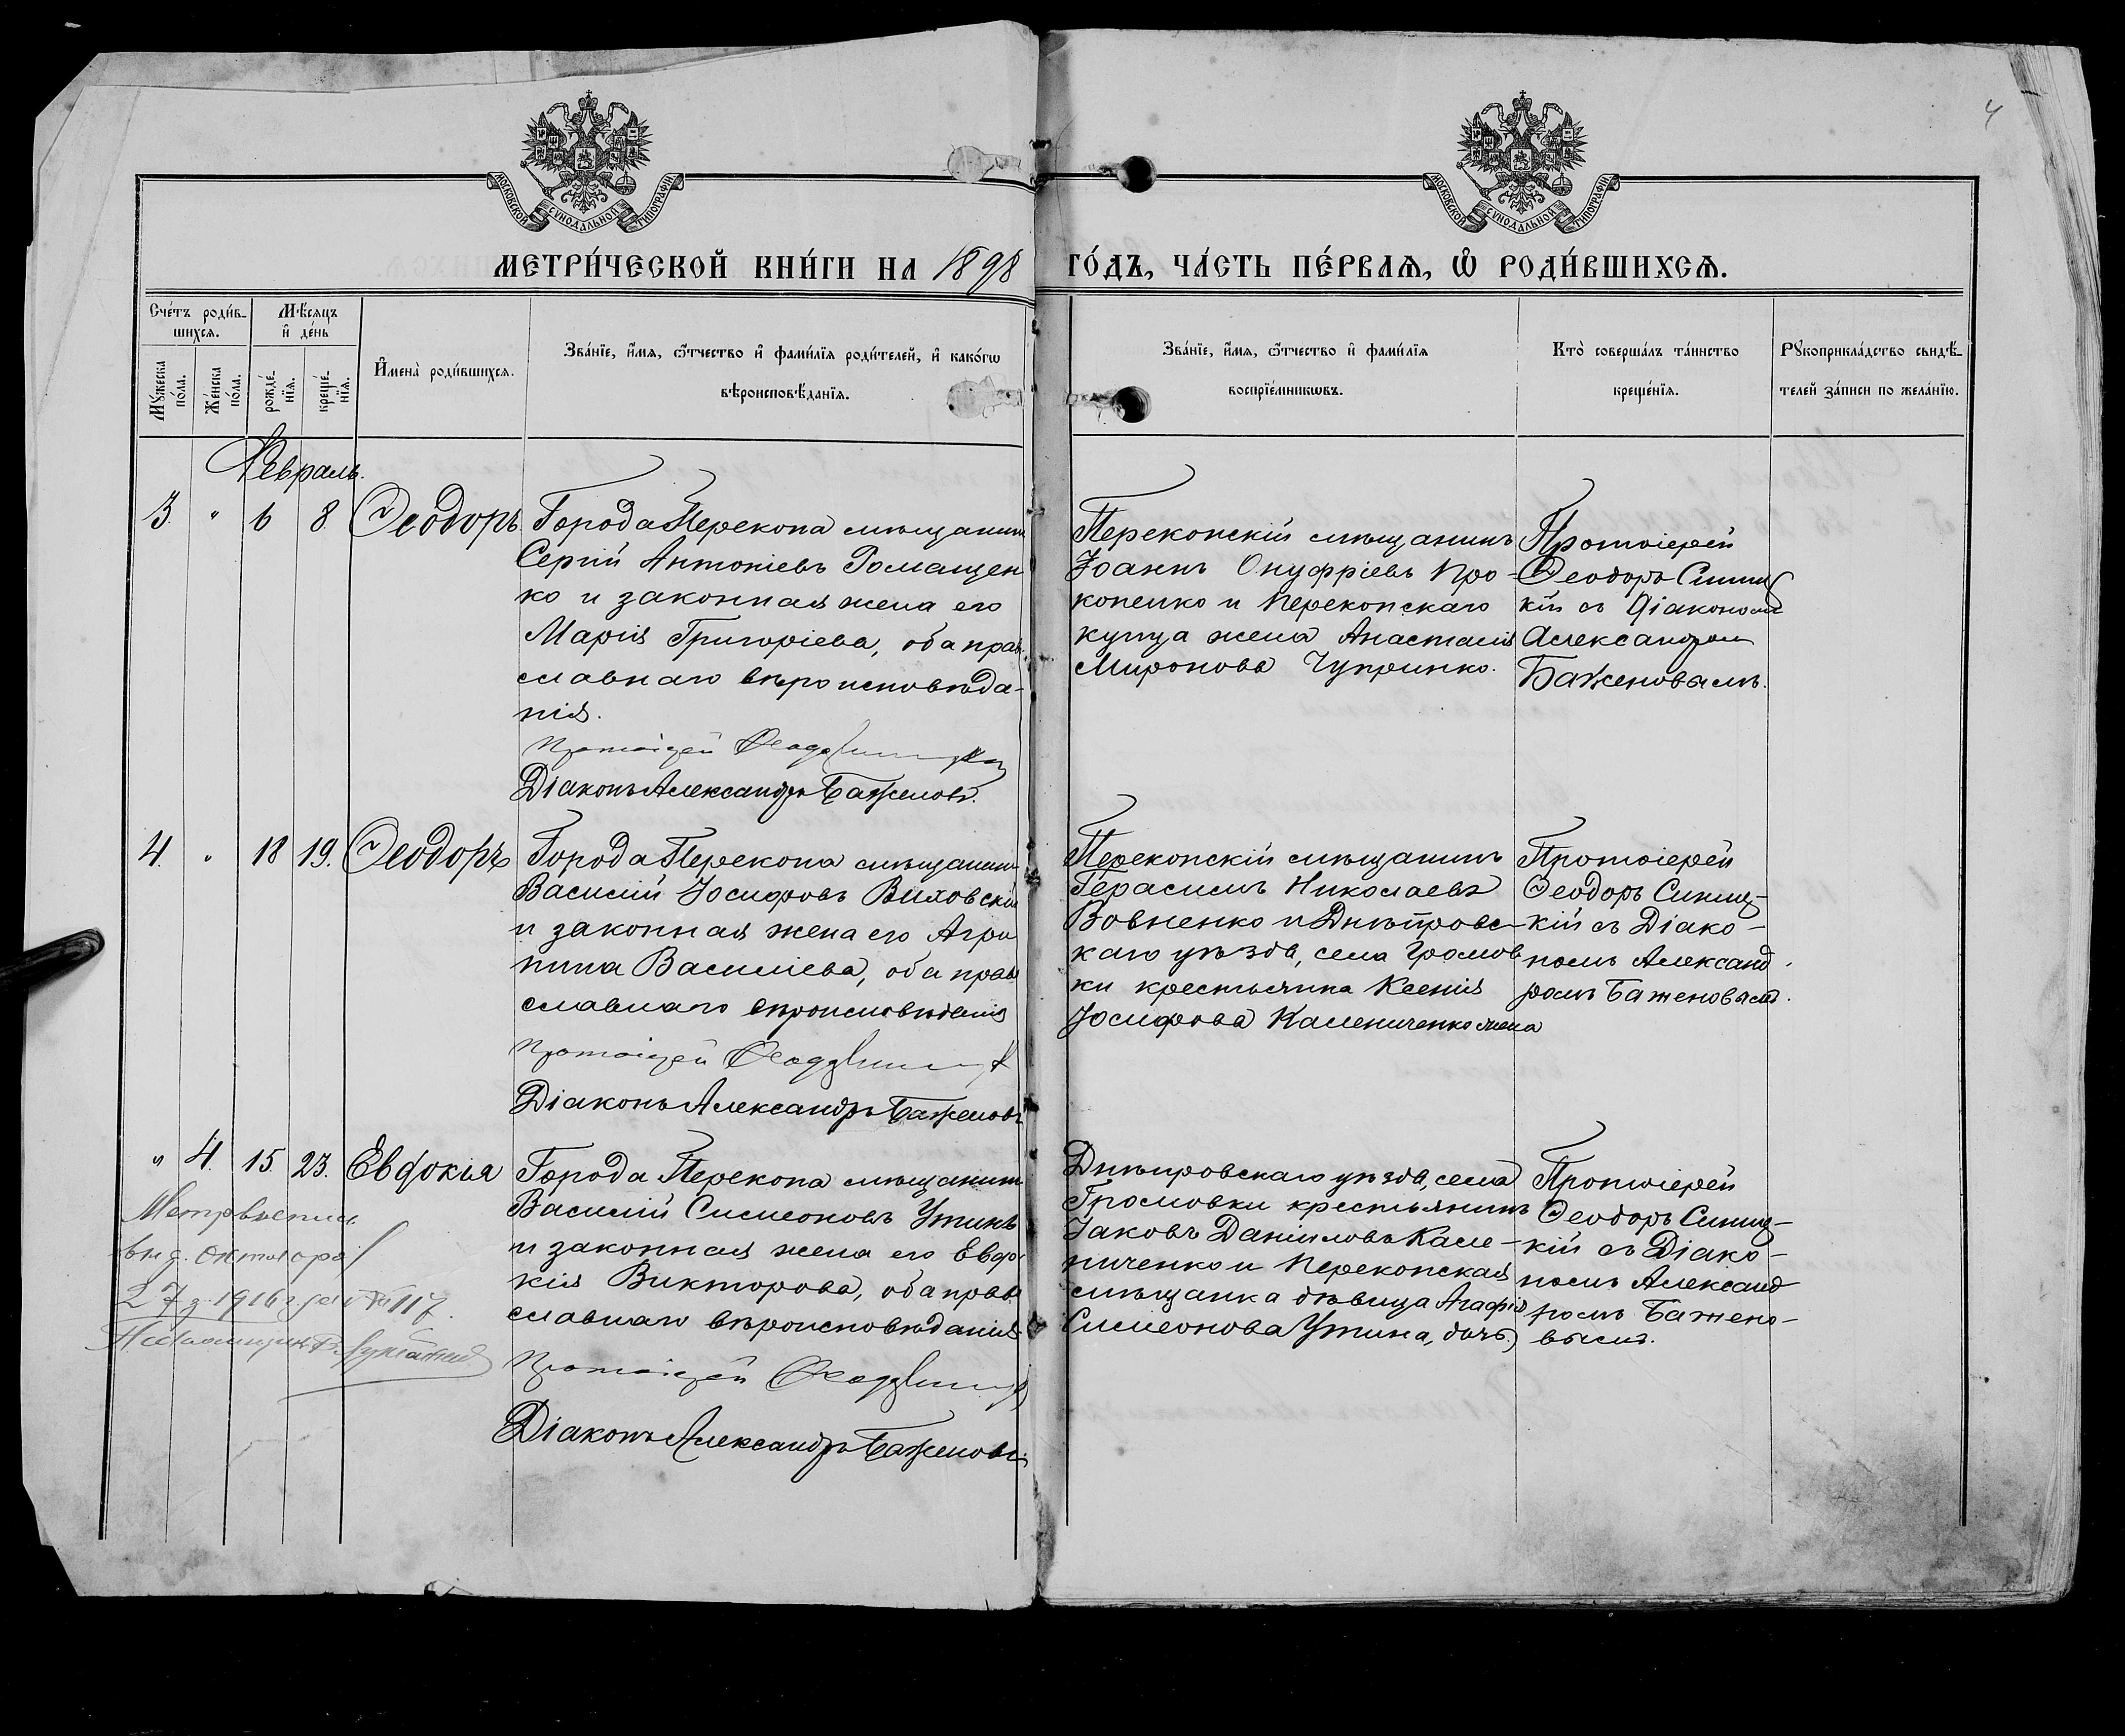 4
МОСКОВСКОЙ СУНОДАЛЬНОЙ ТИПОГРАФІИ
МОСКОВСКОЙ СУНОДАЛЬНОЙ ТИПОГРАФІИ
МЕТРИ́ЧЕСКОЙ КНИ́ГИ НА 1898 ГО́ДЪ, ЧА́СТЬ ПЕ́РВАѦ, Ѽ РОДИ́ВШИХСѦ.
Сче́тъ роди́в-
шихсѧ.
Мꙋ́жеска
по́ла.
Же́нска
по́ла.
Мѣ́сѧцъ
и҆ де́нь
рожде́-
нїѧ.
креще́-
нїѧ.
И҆мена̀ роди́вшихсѧ.
Зва́нїе, и҆́мѧ, ѻ҆́тчество и҆ фами́лїѧ роди́телей, и҆ како́гѡ
вѣроисповѣ́данїѧ.
Зва́нїе, и҆́мѧ, ѻ҆́тчество и҆ фами́лїѧ
воспрїе́мникѡвъ.
Кто̀ соверша́лъ та́инство
креще́нїѧ.
Рꙋкоприкла́дство свидѣ́-
телей за́писи по жела́нїю.
Февраль.
3. " 6 8 Ѳеодоръ
Города Перекопа мѣщанинъ
Сергій Антоніевъ Романцен
ко и законная жена его
Марія Григоріева, оба прав
славнаго вѣроисповѣда-
нія.
Протоіерей
Діаконъ Александръ Баженовъ.
Перекопскій мѣщанинъ
Іоаннъ Онуфріевъ Про-
копенко и Перекопскаго
купца жена Анастасія
Миронова Чупринко.
Протоіерей
Ѳеодоръ Синиц
кій съ Діакономъ
Александром
Баженовымъ.
4. " 18 19. Ѳеодоръ
Города Перекопа мѣщанинъ
Василій Іосифовъ Виловскій
и законная жена его Агри
пина Василіева, оба право
славнаго вѣроисповѣданія
Протоіерей
Діаконъ Александръ Баженовъ
Перекопскій мѣщанинъ
Герасимъ Николаевъ
Вовненко и Днѣпровс-
каго уѣзда, села Громов
ки крестьянина Ксенія
Іосифова Калениченко жена
Протоіерей
Ѳеодоръ Синиц-
кій съ Діако-
номъ Александ
ромъ Баженовымъ.
" 4. 15. 23. Евдокія
Города Перекопа мѣщанинъ
Василій Симеоновъ Утинъ
и законная жена его Евдо-
кія Викторова, оба право
славнаго вѣроисповѣданія
Протоіерей
Діаконъ Александръ Баженовъ.
Днѣпровскаго уѣзда, села
Громовки крестьянинъ
Іаковъ Даніиловъ Кале-
ниченко и Перекопская
мѣщанка дѣвица Агафія
Симеонова Утина, дочь.
Протоіерей
Ѳеодоръ Синиц-
кій съ Діако-
номъ Александ
ромъ Бажено-
вымъ.
Метр выпись
выд. октября
27 д. 1916 г. № 117.